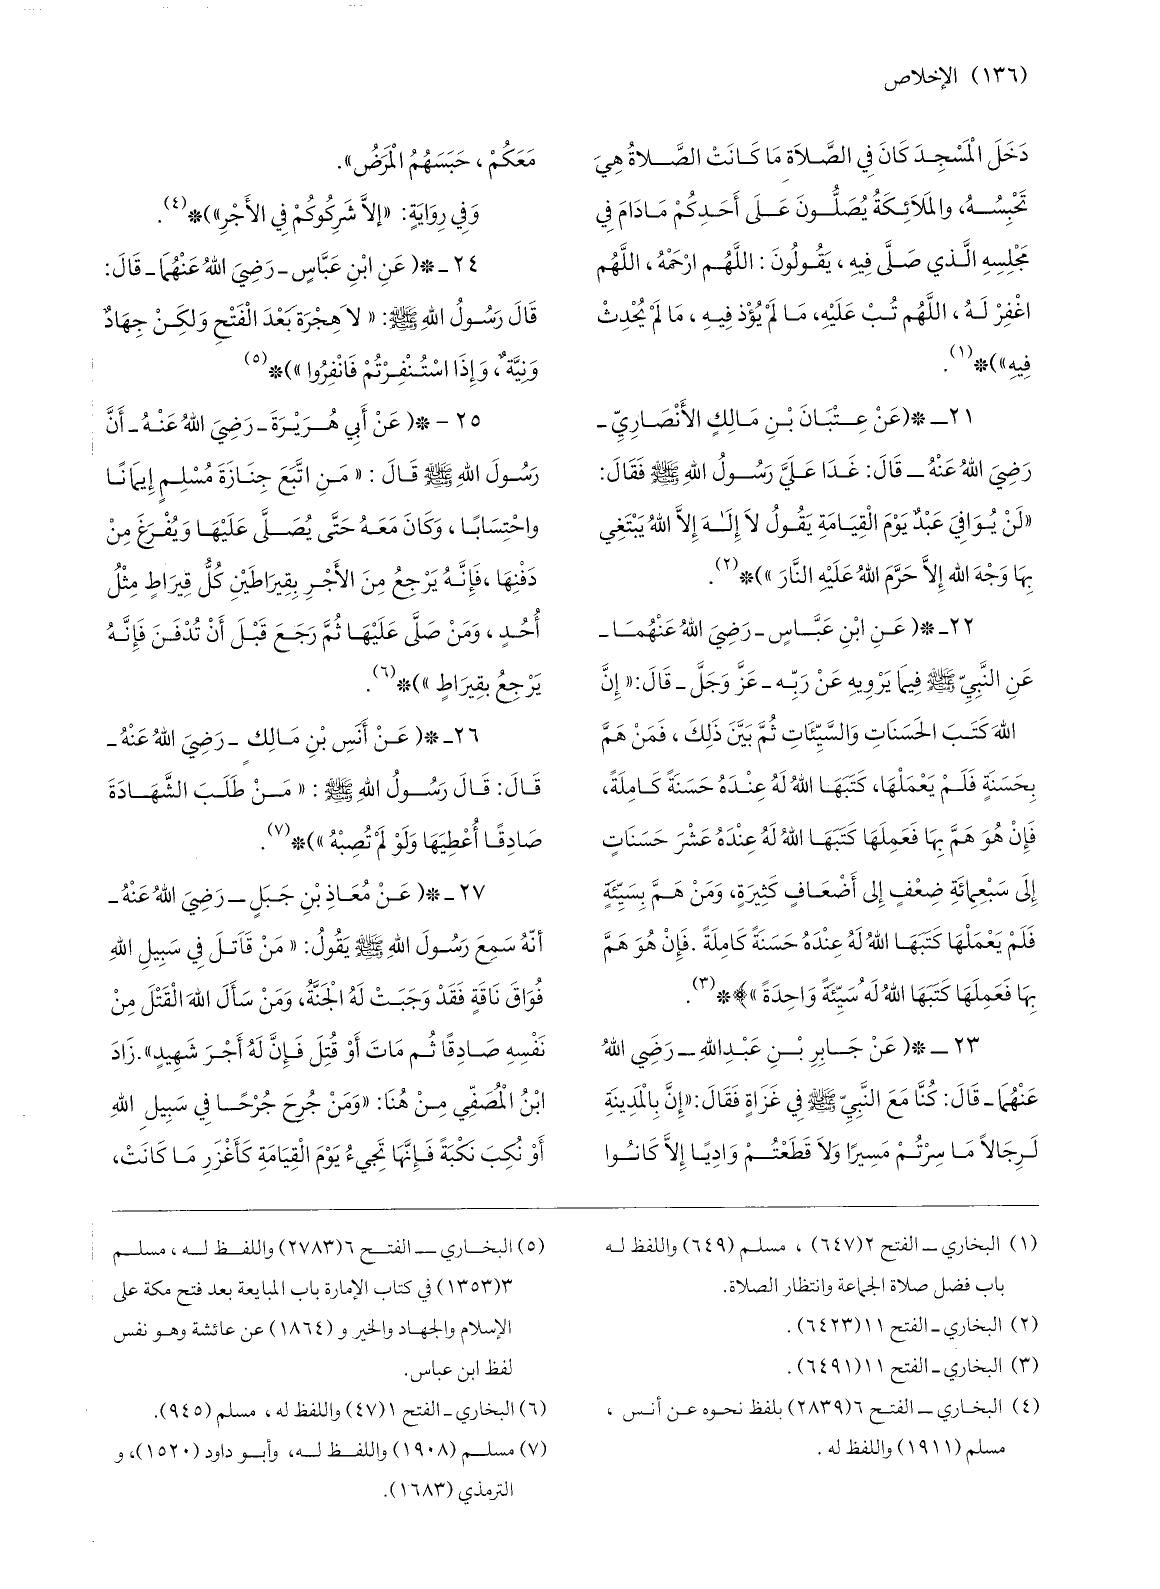 (١٣٦) الإخلاص
دَخَلَ الْمَسْجِدَ كَانَ فِي الصَّلاَةِ مَا كَانَتْ الصَّلاَةُ هِيَ
تَحْبِسُهُ، والمَلاَئِكَةُ يُصَلُّونَ عَلَى أَحَدِكُمْ مَادَامَ فِي
مَجْلِسِهِ الَّذِي صَلَّى فِيهِ ، يَقُولُونَ : اللَّهُم ارْحَمْهُ ، اللَّهُم
اغْفِرْ لَهُ ، اللَّهُم تُبْ عَلَيْهِ، مَا لَمْ يُؤْذِ فِيهِ ، مَا لَمْ يُحْدِثْ
فِيهِ»)*(١).
٢١ـ *(عَنْ عِتْبَانَ بْنِ مَالِكٍ الأَنْصَارِيّ ـ
رَضِيَ اللهُ عَنْهُ ـ قَالَ: غَدَا عَلَيَّ رَسُولُ اللهِ ﷺ فَقَالَ:
«لَنْ يُوَافِيَ عَبْدٌ يَوْمَ الْقِيَامَةِ يَقُولُ لاَ إِلَهَ إِلاَّ اللهُ يَبْتَغِي
بِهَا وَجْهَ اللهِ إِلاَّ حَرَّمَ اللهُ عَلَيْهِ النَّارَ »)*(٢).
٢٢ـ *( عَنِ ابْنِ عَبَّاسٍ ـ رَضِيَ اللهُ عَنْهُمَا ـ
عَنِ النَّبِيِّ ﷺ فِيمَا يَرْوِيهِ عَنْ رَبِّهِ ـ عَزَّ وَجَلَّ ـ قَالَ:« إِنَّ
اللهَ كَتَبَ الحَسَنَاتِ وَالسَّيِّئَاتِ ثُمَّ بَيَّنَ ذَلِكَ ، فَمَنْ هَمَّ
بِحَسَنَةٍ فَلَمْ يَعْمَلْهَا، كَتَبَهَا اللهُ لَهُ عِنْدَهُ حَسَنَةً كَامِلَةً،
فَإِنْ هُوَ هَمَّ بِهَا فَعَمِلَهَا كَتَبَهَا اللهُ لَهُ عِنْدَهُ عَشْرَ حَسَنَاتٍ
إِلَى سَبْعِمِائَةِ ضِعْفٍ إِلى أَضْعَافٍ كَثِيرَةٍ، وَمَنْ هَمَّ بِسَيِّئَةٍ
فَلَمْ يَعْمَلْهَا كَتَبَهَا اللهُ لَهُ عِنْدَهُ حَسَنَةً كَامِلَةً .فَإِنْ هُوَ هَمَّ
بِهَا فَعَمِلَهَا كَتَبَهَا اللهُ لَهُ سَيِّئَةً وَاحِدَةً »﴾*(٣).
٢٣ ـ *( عَنْ جَابِرِ بْنِ عَبْدِاللهِ ـ رَضِيَ اللهُ
عَنْهُمَا ـ قَالَ: كُنَّا مَعَ النَّبِيِّ ﷺ فِي غَزَاةٍ فَقَالَ:«إِنَّ بِالْمَدِينَةِ
لَرِجَالاً مَا سِرْتُمْ مَسِيرًا وَلاَ قَطَعْتُمْ وَادِيًا إِلاَّ كَانُوا
مَعَكُمْ ، حَبَسَهُمُ الْمَرَضُ».
وَفِي رِوَايَةٍ: «إِلاَّ شَرِكُوكُمْ فِي الأَجْرِ»)*(٤).
٢٤ ـ *( عَنِ ابْنِ عَبَّاسٍ ـ رَضِيَ اللهُ عَنْهُمَا ـ قَالَ:
قَالَ رَسُولُ اللهِ ﷺ: « لاَ هِجْرَةَ بَعْدَ الْفَتْحِ وَلكِنْ جِهَادٌ
وَنِيَّةٌ ، وَإِذَا اسْتُنْفِرْتُمْ فَانْفِرُوا »)*(٥)
٢٥ - *( عَنْ أَبِي هُرَيْرَةَ ـ رَضِيَ اللهُ عَنْهُ ـ أَنَّ
رَسُولَ اللهِ ﷺ قَالَ : « مَنِ اتَّبَعَ جِنَازَةَ مُسْلِمٍ إِيمَانًا
واحْتِسَابًا ، وَكَانَ مَعَهُ حَتَّى يُصَلَّى عَلَيْهَا وَيُفْرَغَ مِنْ
دَفْنِهَا ،فَإِنَّهُ يَرْجِعُ مِنَ الأَجْرِ بِقِيرَاطَيْنِ كُلُّ قِيرَاطٍ مِثْلُ
أُحُدٍ ، وَمَنْ صَلَّى عَلَيْهَا ثُمَّ رَجَعَ قَبْلَ أَنْ تُدْفَنَ فَإِنَّهُ
يَرْجِعُ بِقِيرَاطٍ »)*(٦).
٢٦ـ *( عَنْ أَنَسِ بْنِ مَالِكٍ ـ رَضِيَ اللهُ عَنْهُ ـ
قَالَ: قَالَ رَسُولُ اللهِ ﷺ : « مَنْ طَلَبَ الشَّهَادَةَ
صَادِقًا أُعْطِيَهَا وَلَوْ لَمْ تُصِبْهُ »)*(٧).
٢٧ ـ *( عَنْ مُعَاذِ بْنِ جَبَلٍ ـ رَضِيَ اللهُ عَنْهُ ـ
أنَّهُ سَمِعَ رَسُولَ اللهِ ﷺ يَقُولُ: « مَنْ قَاتَلَ فِي سَبِيلِ اللهِ
فُوَاقَ نَاقَةٍ فَقَدْ وَجَبَتْ لَهُ الْجَنَّةُ، وَمَنْ سَأَلَ اللهَ الْقَتْلَ مِنْ
نَفْسِهِ صَادِقًا ثُم مَاتَ أَوْ قُتِلَ فَإِنَّ لَهُ أَجْرَ شَهِيدٍ».زَادَ
ابْنُ الْمُصَفَّي مِنْ هُنَا: «وَمَنْ جُرِحَ جُرْحًا فِي سَبِيلِ اللهِ
أَوْ نُكِبَ نَكْبَةً فَإِنَّهَا تَجِيءُ يَوْمَ القِيَامَةِ كَأَغْزَرِ مَا كَانَتْ،
(١) البخاري ـ الفتح ٢(٦٤٧) ، مسلم (٦٤٩) واللفظ له
باب فضل صلاة الجماعة وانتظار الصلاة.
(٢) البخاري ـ الفتح ١١(٦٤٢٣) .
(٣) البخاري ـ الفتح ١١(٦٤٩١) .
(٤) البخاري ـ الفتح ٦(٢٨٣٩) بلفظ نحوه عن أنس ،
مسلم (١٩١١) واللفظ له .
(٥) البخاري ـ الفتح ٦(٢٧٨٣) واللفظ له ، مسلم
٣(١٣٥٣) في كتاب الإمارة باب المبايعة بعد فتح مكة على
الإسلام والجهاد والخير و (١٨٦٤) عن عائشة وهو نفس
لفظ ابن عباس.
(٦) البخاري ـ الفتح ١(٤٧) واللفظ له ، مسلم (٩٤٥).
(٧) مسلم (١٩٠٨) واللفظ له، وأبو داود (١٥٢٠)، و
الترمذي (١٦٨٣).